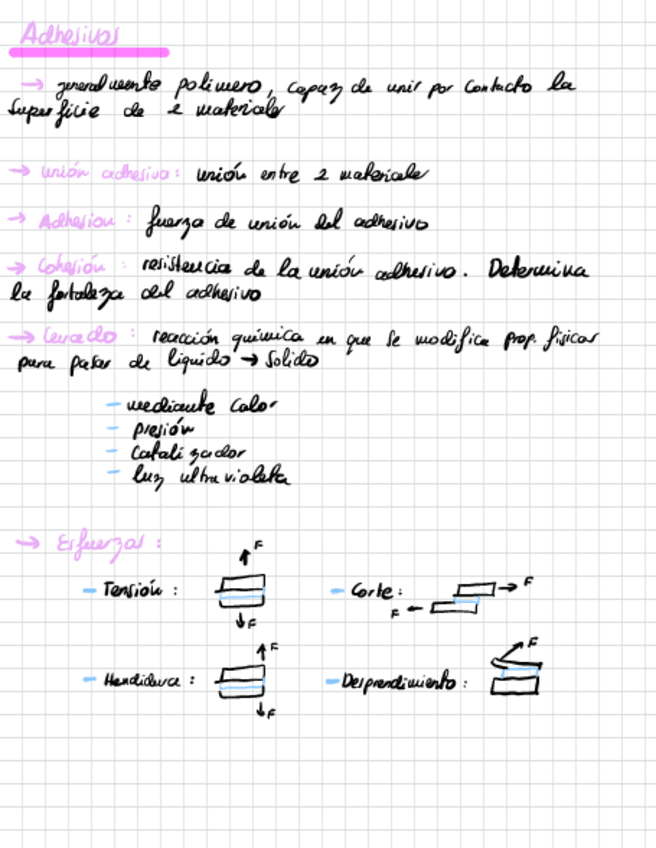 Adhesivos
→ generalmente polimero, capaz de unir por contacto la
superficie de 2 materiales
→ unión adhesiva: unión entre 2 materiales
→ Adhesion: fuerza de unión del adhesivo
→ Cohesión: resistencia de la unión adhesivo. Determina
la fortaleza del adhesivo
→ Curado: reacción química en que se modifica prop. físicas
para pasar de líquido → Solido
- mediante calor
- presión
- Catalizador
- luz ultravioleta
→ Esfuerzos:
- Tensión: F F
- Corte: F F
- Hendidura: F F
- Desprendimiento: F